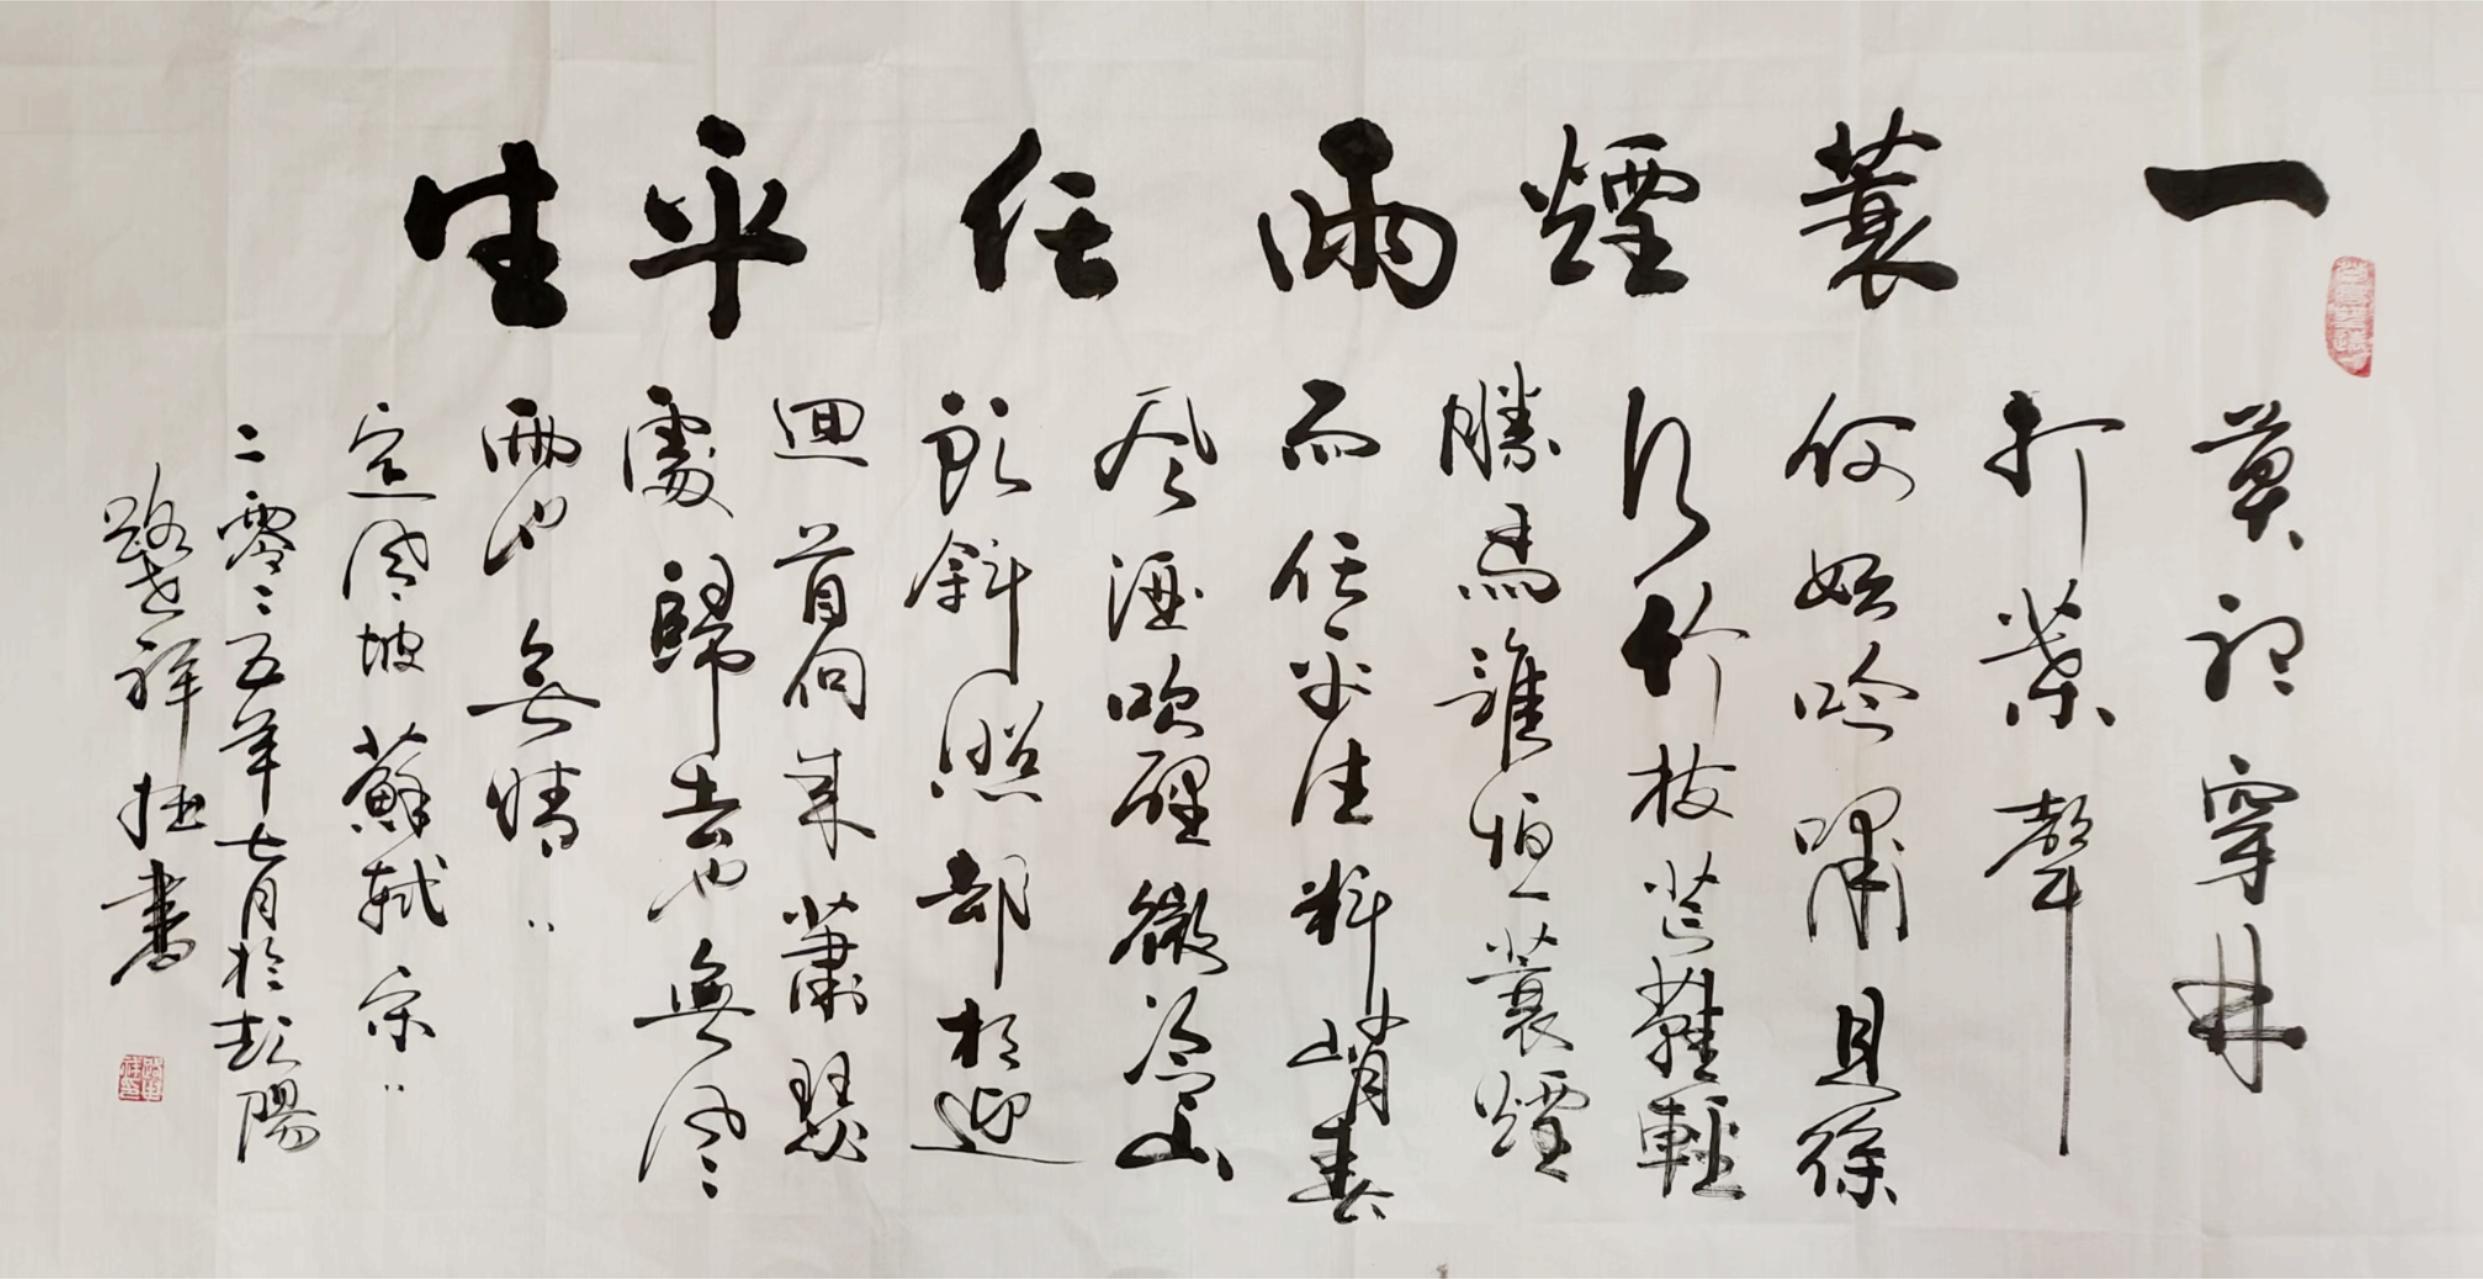 一蓑煙雨任平生
莫聽穿林
打葉聲
何妨吟嘯且徐
行竹杖芒鞋輕
勝馬誰怕一蓑煙
雨任平生料峭春
風酒吹醒微冷山
頭斜照却相迎
迴首向来蕭瑟
處歸去也無風
雨也無晴
定風坡 蘇軾 宋
二零二五年七月於彭陽
路世祥拙書